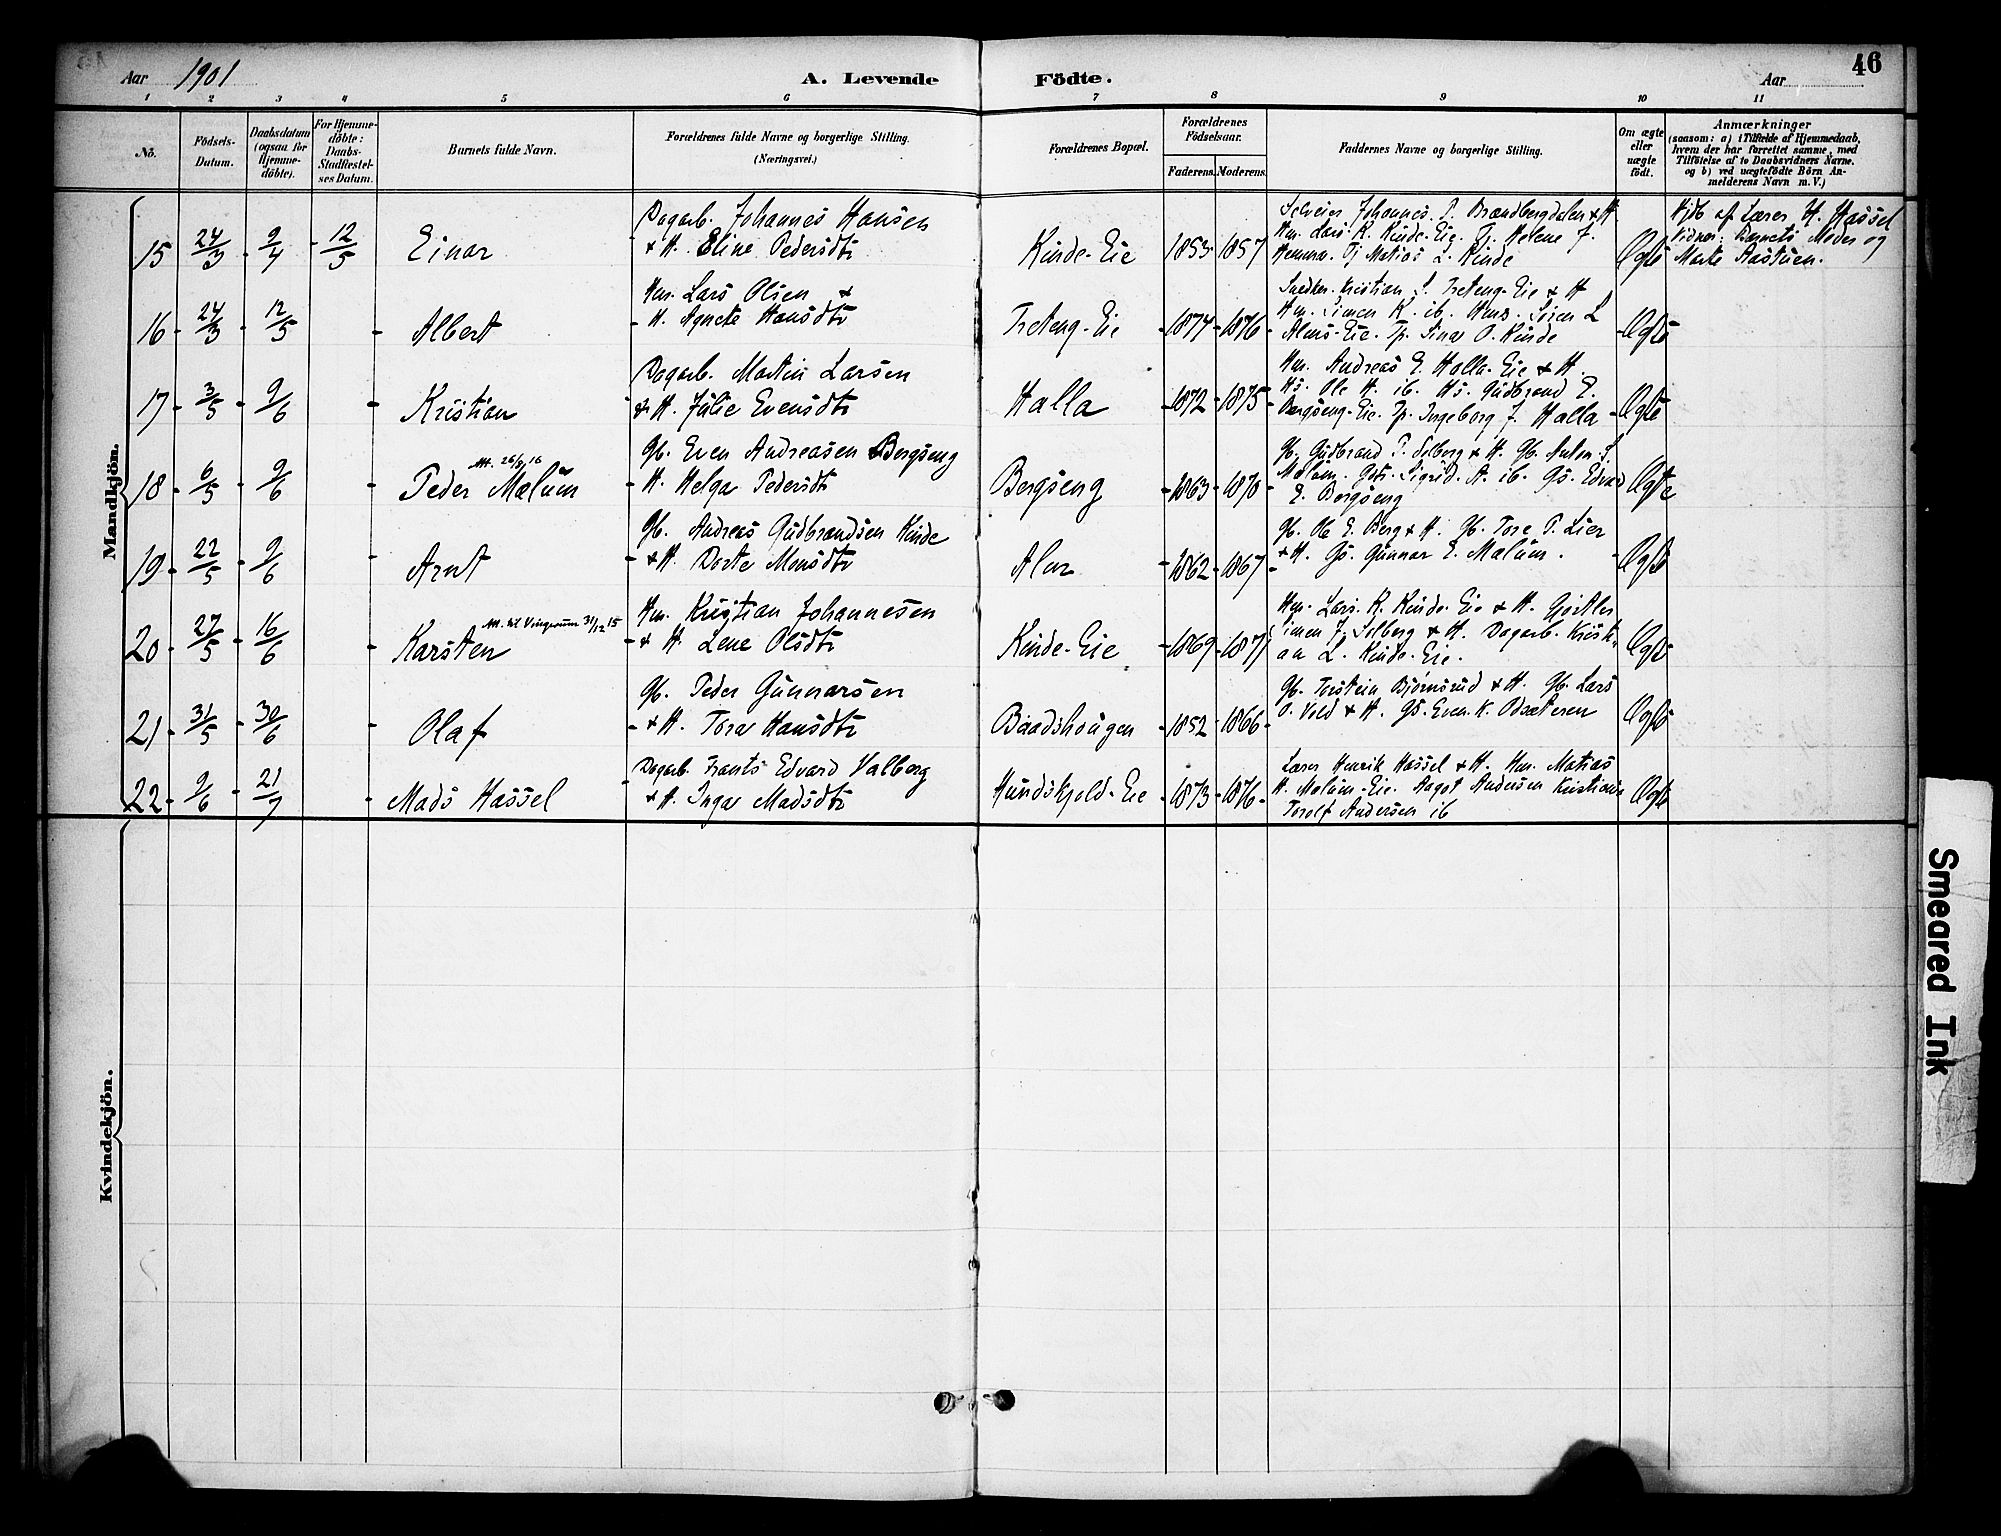 46
Aar 1901
A. Levende Födte.
Aar
1 2 3 4 5 6 7 8 9 10 11
No.
Födsels-Datum.
Daabsdatum (ogsaa for Hjemme-döbte).
For Hjemme-döbte: Daabs-Stadfæstel-ses Datum.
Barnets fulde Navn.
Forældrenes fulde Navne og borgerlige Stilling. (Næringsvei.)
Forældrenes Bopæl.
Forældrenes Födselsaar.
Faderens. Moderens.
Faddernes Navne og borgerlige Stilling.
Om ægte eller uægte födt.
Anmærkninger
(saasom: a) i Tilfælde af Hjemmedaab,
hvem der har forrettet samme, med
Tilföielse af to Daabsvidners Navne.
og b) ved uægtefödte Börn An-
melderens Navn m. V.)
Mandkjön.
15 24/3 - 9/4 - 12/5 Einar
Dagarb. Johannes Hansen
& H. Eline Pedersdtr
Kinde-Eie 1853 1857
Selveier Johannes P. Brændbergdalen & H
Hm. Lars K. Kinde-Eie. Pi. Helene J.
Hemma. Pi Matias L. Kinde
Ægte
Hjdb af Lærer H. Hassel
Vidner: Barnets Moder og
Marte Aastuen.
16 - 24/3 - 12/5 - Albert
Hm. Lars Olsen &
- H. Agnete Hansdtr
Treteng-Eie - 1874 - 1876 -
Snedker Kristian S. Treteng-Eie & H
Hm. Simen K. ib. Hm. L
Alms-Eie. Pp. Sina O. Kinde
- Ægte
17 - 3/5 - 9/6 - Kristian
Dagarb. Martin Larsen
& H. Julie Evensdtr
Halla - 1872 - 1875 -
Hm. Andreas E. Halla-Eie & H.
Hs. Ole H. ib. Hs. Gudbrand E.
Bergseng-Eie. Pp. Ingeborg J. Halla
- Ægte
18 - 6/5 - 9/6 - Att. 26/8 16
Peder Mælum
Gb. Even Andreasen Bergseng
- H. Helga Pedersdtr
Bergseng - 1863 - 1870 -
Gb. Gudbrand P. Solberg & H. Gb. Anton S.
Mælum. Gdtr. Sigrid A. ib. Gs. Edvard
E. Bergseng
Ægte
19 - 22/5 - 9/6 - Arnt
Gb. Andreas Gudbrandsen Kinde
- & H. Dorte Monsdtr
Alm - 1862 - 1867 -
Gb. Ole E. Berg & H. Gb. Tore P. Lier
& H. Gs. Gunnar E. Mælum.
- Ægte
20 - 27/5 - 16/6 - Att. til Vingerum 31/12 15
Karsten
Hm. Kristian Johannesen
- & H. Lene Olsdtr
Kinde-Eie - 1869 - 1871
Hm. Lars K. Kinde-Eie & H. Gjørtler
Simen J. Solberg & H. Dagarb. Kristi-
an L. Kinde-Eie.
Ægte
21 - 31/5 - 30/6 - Olaf
Gb. Peder Gunnarsen
- & H. Tora Hansdtr
Baadshougen - 1852 - 1866 -
Gb. Torstein Bjørnsrud & H. Gb. Lars
O. Vold & H. Gs. Even K. Odsæteren
Ægte
22 - 9/6 - 21/7 - Mads Hassel
Dagarb. Frants Edvard Valberg
& H. Inga Madsdtr
Hundskjold-Eie - 1873 - 1876 -
Lærer Henrik Hassel & H. Hm. Matias
H. Mælum-Eie. Aagot Andersen Kristiania
Torolf Andersen ib
Ægte
Kvindekjön.
Smeared Ink